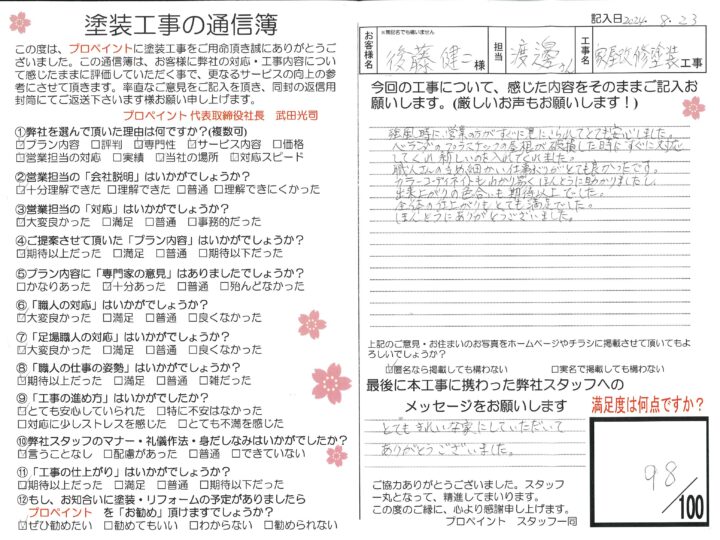 塗装工事の通信簿
この度は、プロペイントに塗装工事をご用命頂き誠にありがとうご
ざいました。この通信簿は、お客様に弊社の対応・工事内容につい
て感じたままに評価していただく事で、更なるサービスの向上の参
考にさせて頂きます。率直なご意見をご記入を頂き、同封の返信用
封筒にてご返送下さいます様お願い申し上げます。
プロペイント 代表取締役社長 武田光司
①弊社を選んで頂いた理由は何ですか?(複数可)
☑プラン内容 □評判 ☑専門性 ☑サービス内容 □価格
☑営業担当の対応 □実績 ☑当社の場所 ☑対応スピード
②営業担当の「会社説明」はいかがでしょうか?
☑十分理解できた □理解できた □普通 □理解できにくかった
③営業担当の「対応」はいかがでしょうか?
☑大変良かった □満足 □普通 □事務的だった
④ご提案させて頂いた「プラン内容」はいかがでしょうか?
☑期待以上だった □満足 □普通 □期待以下だった
⑤プラン内容に「専門家の意見」はありましたでしょうか?
□かなりあった ☑十分あった □普通 □殆んどなかった
⑥「職人の対応」はいかがでしょうか?
☑大変良かった □満足 □普通 □良くなかった
⑦「足場職人の対応」はいかがでしょうか?
☑大変良かった □満足 □普通 □良くなかった
⑧「職人の仕事の姿勢」はいかがでしょうか?
☑期待以上だった □満足 □普通 □雑だった
⑨「工事の進め方」はいかがでしたか?
☑とても安心していられた □特に不安はなかった
□対応に少しストレスを感じた □とても不満を感じた
⑩弊社スタッフのマナー・礼儀作法・身だしなみはいかがでしたか?
☑言うことなし □配慮があった □普通 □できていない
⑪「工事の仕上がり」はいかがでしょうか?
☑期待以上だった □満足 □普通 □期待以下だった
⑫もし、お知合いに塗装・リフォームの予定がありましたら
プロペイント を「お勧め」頂けますでしょうか?
☑ぜひ勧めたい □勧めてもいい □わからない □勧められない
記入日2024. 8. 23
※無記名でも構いません
お客様名 後藤健二様 担当 渡邊さん 工事名 家屋改修塗装工事
今回の工事について、感じた内容をそのままご記入お
願いします。(厳しいお声もお願いします!)
強風時に営業の方がすぐに見にこられてとても安心しました。
ベランダのプラスチックの屋根が破損した時すぐに対応
してくれ新しいのを入れてくれました。
職人さんのきめ細かい仕事ぶりがとても良かったです。
カラーコーディネイトもわかり易くほんとうに助かりましたし、
出来上がりの色合いも期待以上でした。
全体の仕上がりもとても満足でした。
ほんとうにありがとうございました。
上記のご意見・お住まいのお写真をホームページやチラシに掲載させて頂いてもよ
ろしいでしょうか?
☑匿名なら掲載しても構わない □実名で掲載しても構わない
最後に本工事に携わった弊社スタッフへの
メッセージをお願いします
とてもきれいな家にしていただいて
ありがとうございました。
満足度は何点ですか?
98
/100
ご協力ありがとうございました。スタッフ
一丸となって、精進してまいります。
この度のご縁に、心より感謝申し上げます。
プロペイント スタッフ一同